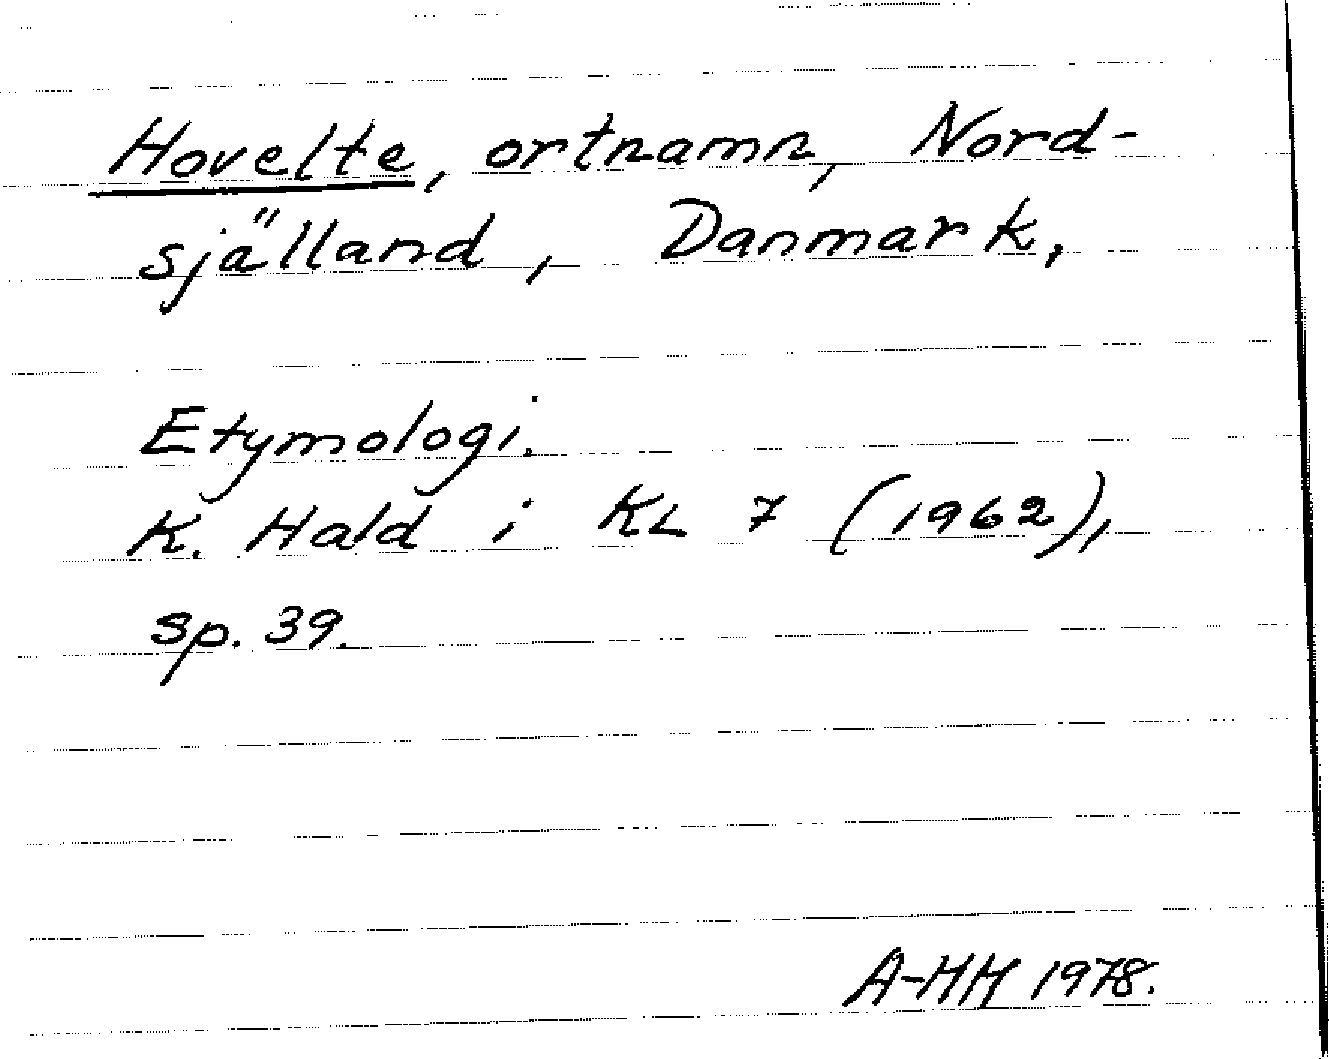 Hovelte, ortnamn, Nord-
själland, Danmark,
Etymologi.
K. Hald i KL 7 (1962),
sp. 39.
A-HH 1978.